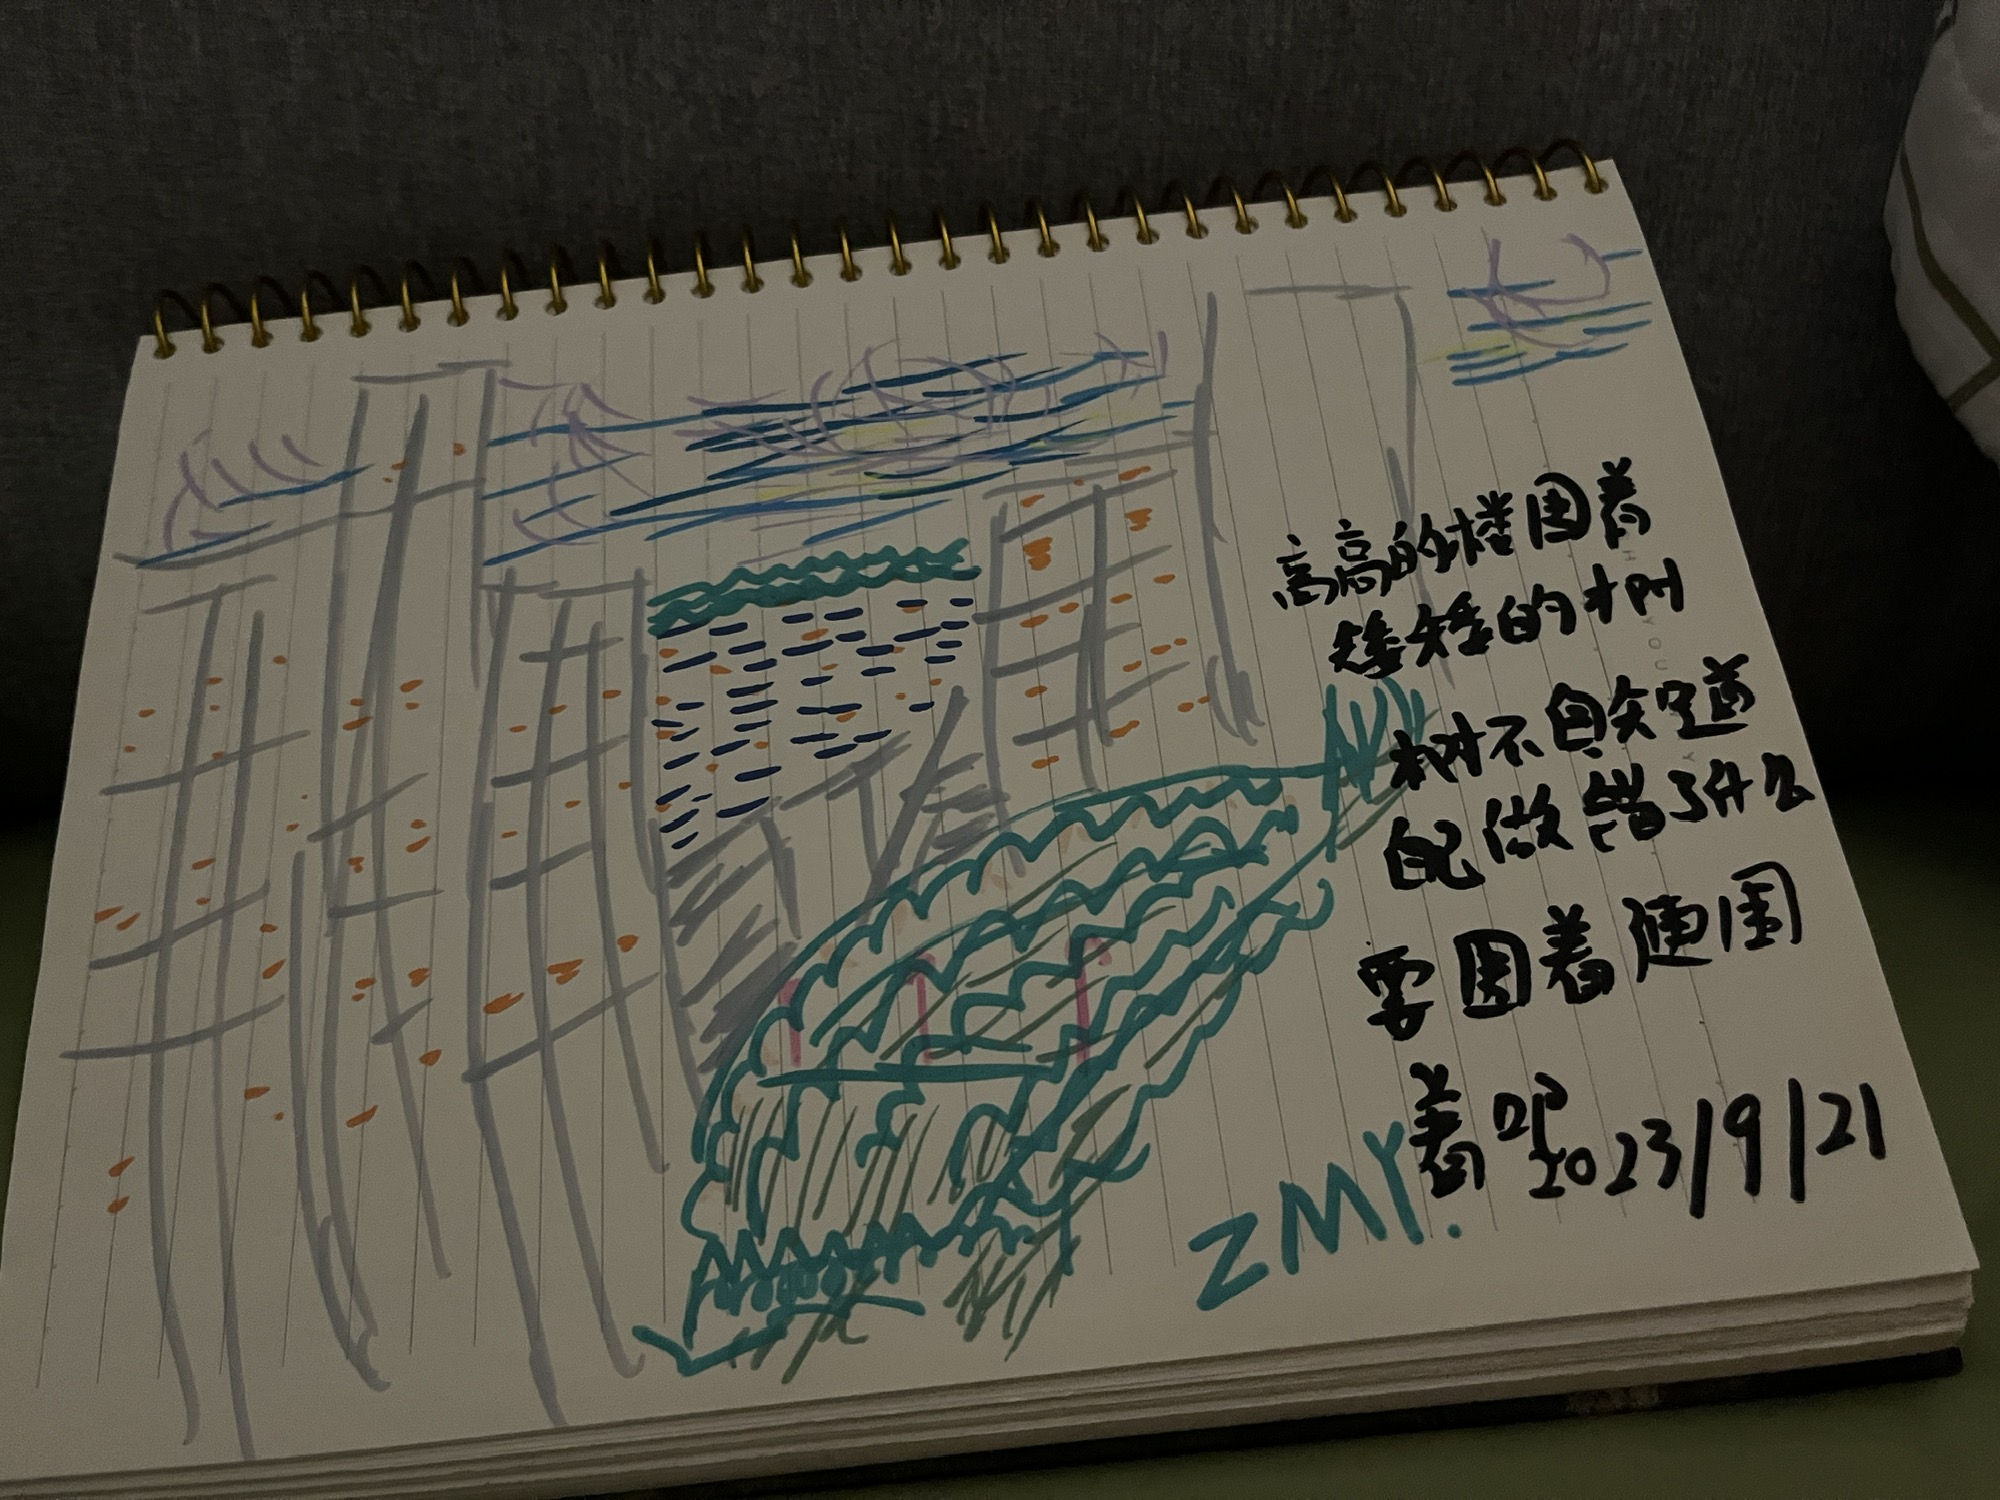 高高的楼围着
矮矮的树
树不自知道
自己做错了什么
要围着围
着呢 2023/9/21
ZMY.